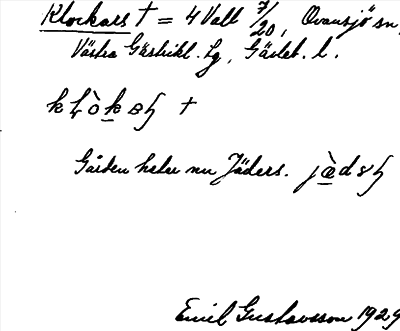 Klockars † = 4 Vall 7/20, Ovansjö sn,
Västra Gästrikl. hg, Gävleb. l.
†
Gården heter nu Jäders.
Emil Gustavsson 1929